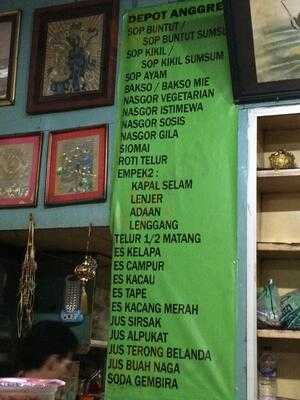 DEPOT ANGGRE
SOP BUNTUT /
SOP BUNTUT SUMSU
SOP KIKIL /
SOP KIKIL SUMSUM
SOP AYAM
BAKSO / BAKSO MIE
NASGOR VEGETARIAN
NASGOR ISTIMEWA
NASGOR SOSIS
NASGOR GILA
SIOMAI
ROTI TELUR
EMPEK2 :
KAPAL SELAM
LENJER
ADAAN
LENGGANG
TELUR 1/2 MATANG
ES KELAPA
ES CAMPUR
ES KACAU
ES TAPE
ES KACANG MERAH
JUS SIRSAK
JUS ALPUKAT
JUS TERONG BELANDA
JUS BUAH NAGA
SODA GEMBIRA